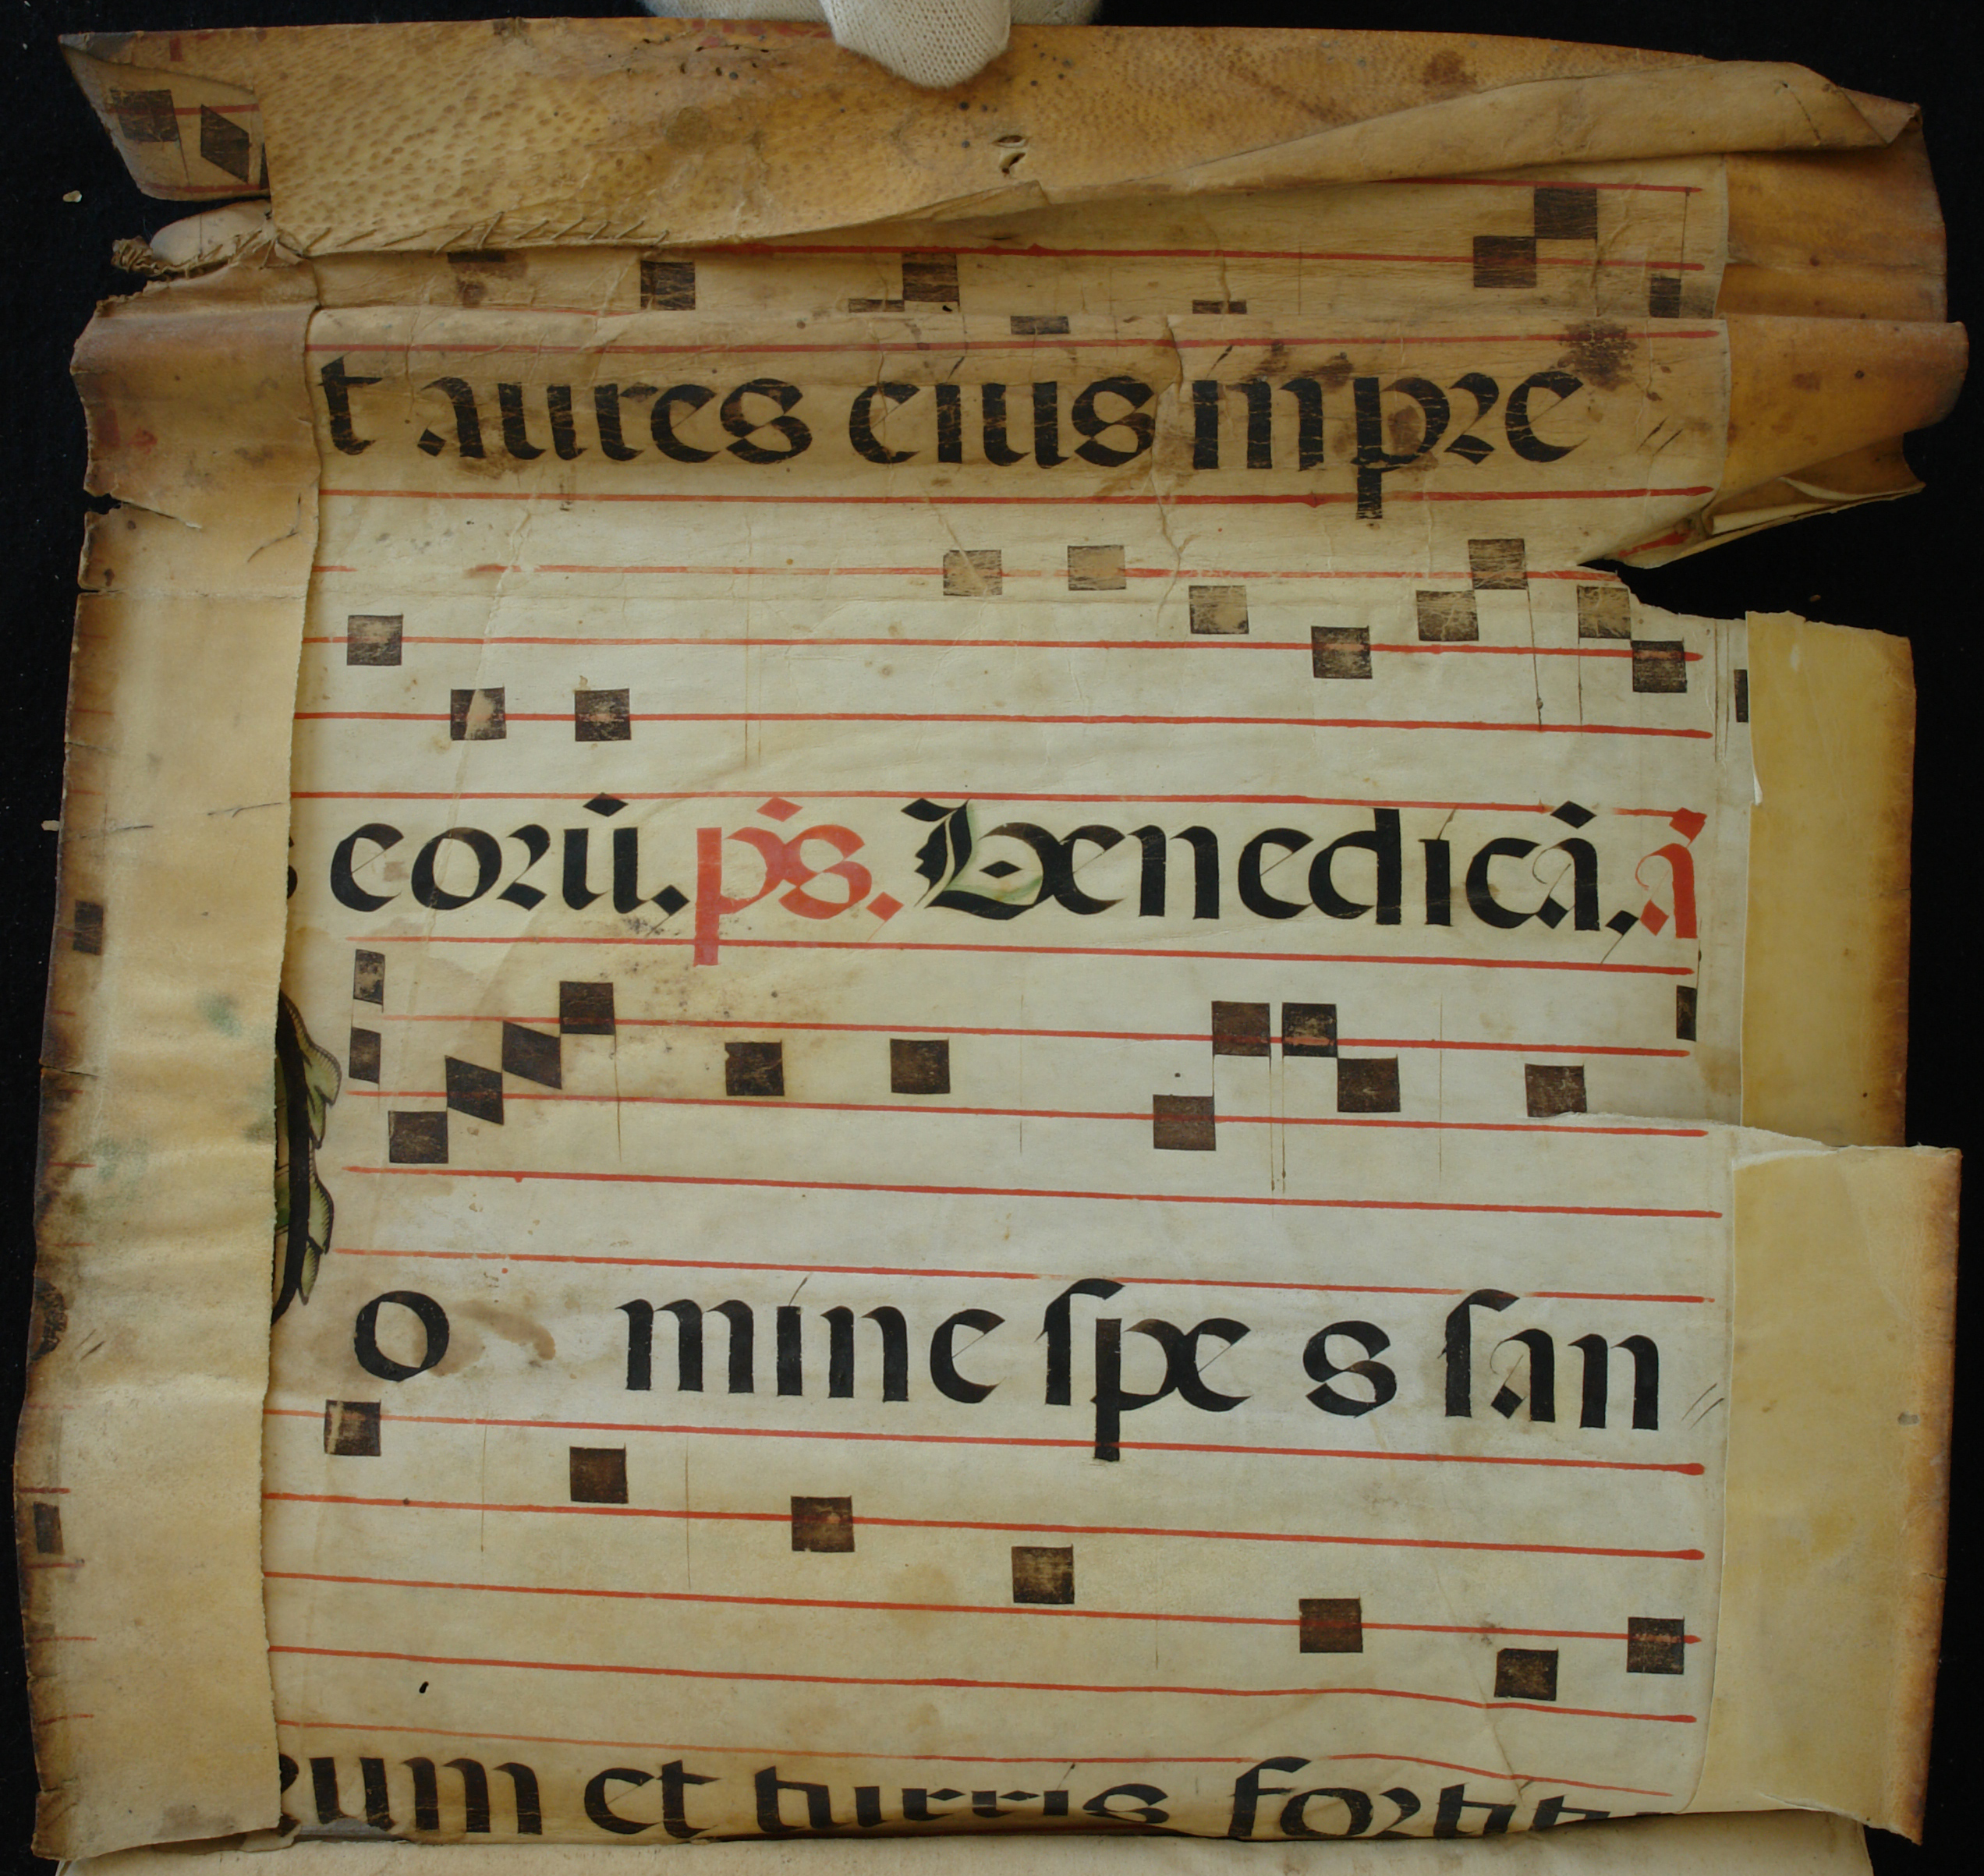 t aures eius in pre
s eorū. p̄s. Benedicā. ā
o mine spe s san
eum et turris fortit